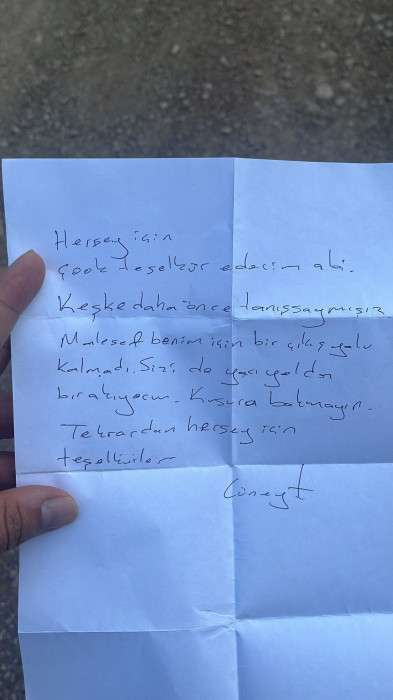 Herşey için
Çook teşekkür ederim abi.
Keşke daha önce tanışsaymışız
Malesef benim için bir çıkış yolu
kalmadı. Sizi de yarı yolda
bırakıyorum. Kusura bakmayın.
Tekrardan herşey için
teşekkürler
Cüneyt